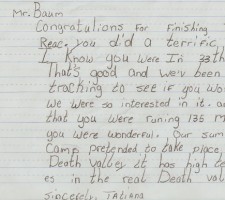 Mr. Baum
Congratulions For Finishing
Reac. you did a terrific
I Know you were In 33th
That's good and we'v been
tracking to see if you wo
we were so interested in it. a
that you were runing 135 M
you were wonderful. Our sum
Camp pretended to take place,
Death valley it has high te
es in the real Death val
Sincerely, Tatiana